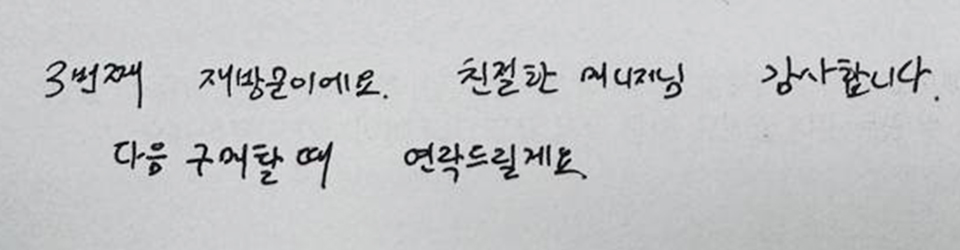 3번째 재방문이에요. 친절한 매니저님 감사합니다.
다음 구매할 때 연락드릴게요.